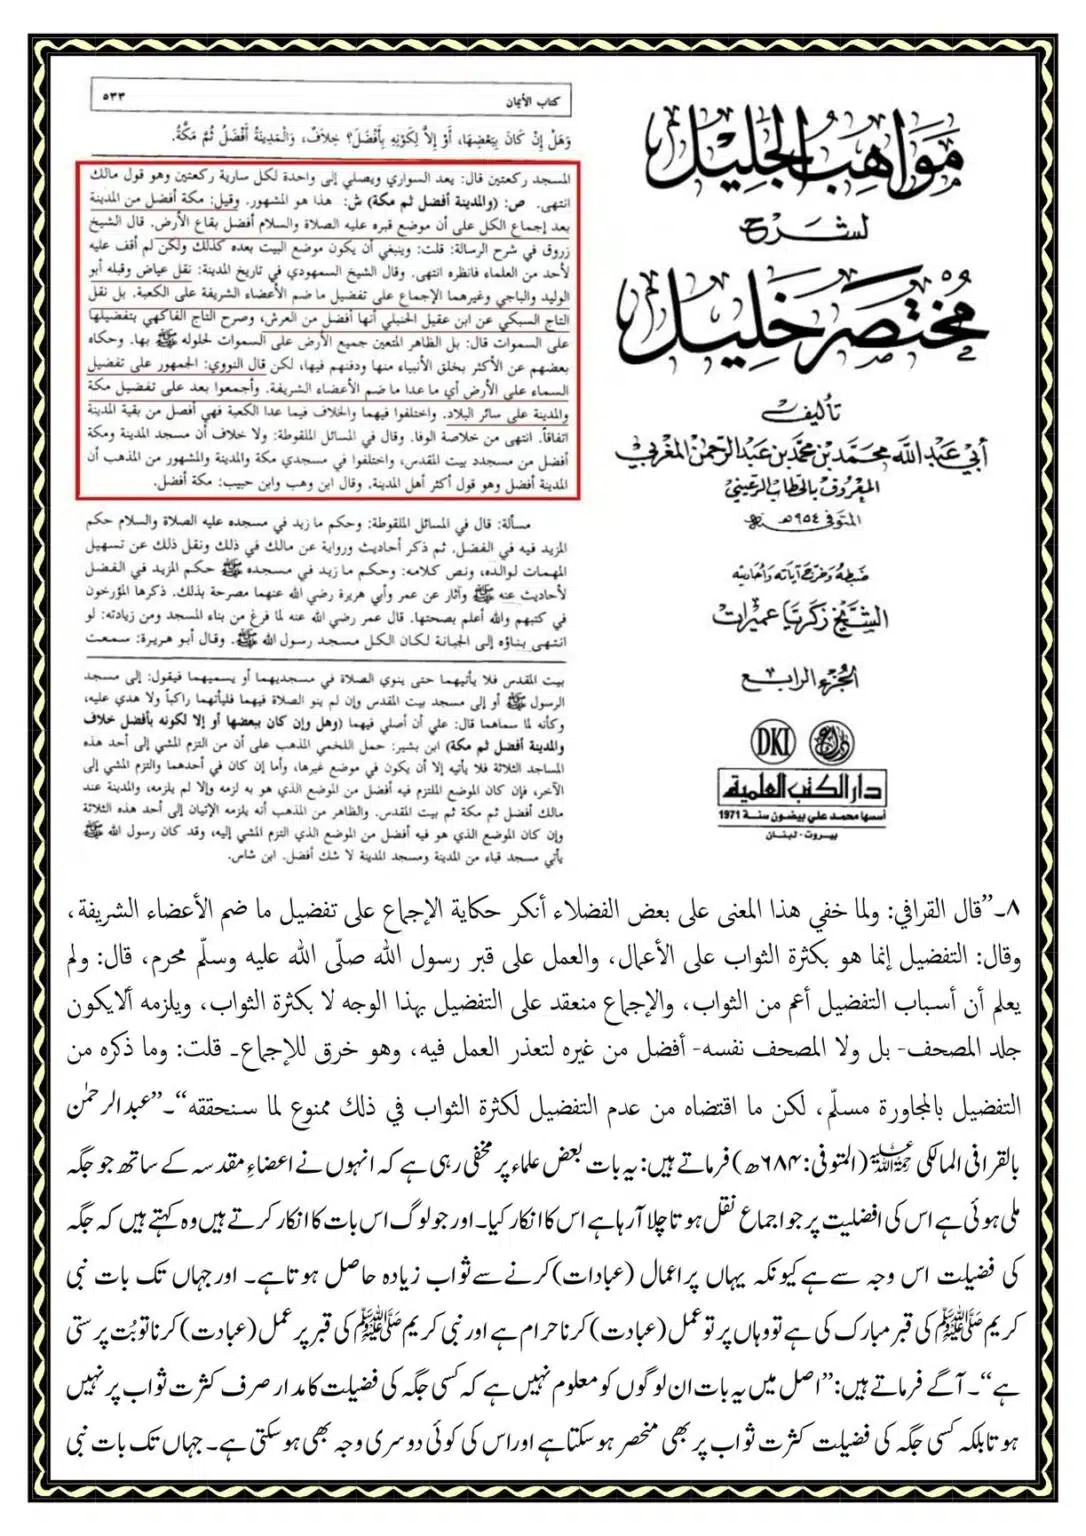 كتاب الأيمان
٥٣٣
وَهَلْ إِنْ كَانَ بِبَعْضِهَا، أَوْ إِلَّا لِكَوْنِهِ بِأَفْضَلَ؟ خِلَافٌ، وَالْمَدِينَةُ أَفْضَلُ ثُمَّ مَكَّةُ.
المسجد ركعتين قال: يعد السواري ويصلي إلى واحدة لكل سارية ركعتين وهو قول مالك
انتهى. ص: (والمدينة أفضل ثم مكة) ش: هذا هو المشهور. وقيل: مكة أفضل من المدينة
بعد إجماع الكل على أن موضع قبره عليه الصلاة والسلام أفضل بقاع الأرض. قال الشيخ
زروق في شرح الرسالة: قلت: وينبغي أن يكون موضع البيت بعده كذلك ولكن لم أقف عليه
لأحد من العلماء فانظره انتهى. وقال الشيخ السمهودي في تاريخ المدينة: نقل عياض وقبله أبو
الوليد والباجي وغيرهما الإجماع على تفضيل ما ضم الأعضاء الشريفة على الكعبة. بل نقل
التاج السبكي عن ابن عقيل الحنبلي أنها أفضل من العرش، وصرح التاج الفاكهي بتفضيلها
على السموات قال: بل الظاهر المتعين جميع الأرض على السموات لحلوله ﷺ بها. وحكاه
بعضهم عن الأكثر بخلق الأنبياء منها ودفنهم فيها، لكن قال النووي: الجمهور على تفضيل
السماء على الأرض أي ما عدا ما ضم الأعضاء الشريفة. وأجمعوا بعد على تفضيل مكة
والمدينة على سائر البلاد. واختلفوا فيهما والخلاف فيما عدا الكعبة فهي أفصل من بقية المدينة
اتفاقاً. انتهى من خلاصة الوفا. وقال في المسائل الملقوطة: ولا خلاف أن مسجد المدينة ومكة
أفضل من مسجدد بيت المقدس، واختلفوا في مسجدي مكة والمدينة والمشهور من المذهب أن
المدينة أفضل وهو قول أكثر أهل المدينة. وقال ابن وهب وابن حبيب: مكة أفضل.
مسألة: قال في المسائل الملقوطة: وحكم ما زيد في مسجده عليه الصلاة والسلام حكم
المزيد فيه في الفضل. ثم ذكر أحاديث ورواية عن مالك في ذلك ونقل ذلك عن تسهيل
المهمات لوالده، ونص كلامه: وحكم ما زيد في مسجده ﷺ حكم المزيد في الفضل
لأحاديث عنه ﷺ وآثار عن عمر وأبي هريرة رضي الله عنهما مصرحة بذلك. ذكرها المؤرخون
في كتبهم والله أعلم بصحتها. قال عمر رضي الله عنه لما فرغ من بناء المسجد ومن زيادته: لو
انتهى بناؤه إلى الجبانة لكان الكل مسجد رسول الله ﷺ. وقال أبو هريرة: سمعت
بيت المقدس فلا يأتيهما حتى ينوي الصلاة في مسجديهما أو يسميهما فيقول: إلى مسجد
الرسول ﷺ أو إلى مسجد بيت المقدس وإن لم ينو الصلاة فيهما فليأتهما راكباً ولا هدي عليه،
وكأنه لما سماهما قال: علي أن أصلي فيهما (وهل وإن كان ببعضها أو إلا لكونه بأفضل خلاف
والمدينة أفضل ثم مكة) ابن بشير: حمل اللخمي المذهب على أن من التزم المشي إلى أحد هذه
المساجد الثلاثة فلا يأتيه إلا أن يكون في موضع غيرها، وأما إن كان في أحدهما والتزم المشي إلى
الآخر، فإن كان الموضع الملتزم فيه أفضل من الموضع الذي هو به لزمه وإلا لم يلزمه، والمدينة عند
مالك أفضل ثم مكة ثم بيت المقدس. والظاهر من المذهب أنه يلزمه الإتيان إلى أحد هذه الثلاثة
وإن كان الموضع الذي هو فيه أفضل من الموضع الذي التزم المشي إليه، وقد كان رسول الله ﷺ
يأتي مسجد قباء من المدينة ومسجد المدينة لا شك أفضل. ابن شاس.
مَوَاهِبُ الْجَلِيْل
لِشَرْح
مُخْتَصَر خَلِيْل
تأليف
أبي عبد الله محمد بن محمد بن عبد الرحمن المغربي
المعروف بالحطاب الرعيني
المتوفى ٩٥٤ هـ
ضبطه وخرج آياته وأحاديثه
الشيخ زكريا عميرات
الجزء الرابع
DKI
دار الكتب العلمية
أسسها محمد علي بيضون سنة 1971
بيروت - لبنان
٨۔”قال القرافي: ولما خفي هذا المعنى على بعض الفضلاء أنكر حكاية الإجماع على تفضيل ما ضم الأعضاء الشريفة،
وقال: التفضيل إنما هو بكثرة الثواب على الأعمال، والعمل على قبر رسول الله صلّى الله عليه وسلّم محرم، قال: ولم
يعلم أن أسباب التفضيل أعم من الثواب، والإجماع منعقد على التفضيل بهذا الوجه لا بكثرة الثواب، ويلزمه ألايكون
جلد المصحف- بل ولا المصحف نفسه- أفضل من غيره لتعذر العمل فيه، وهو خرق للإجماع۔ قلت: وما ذكره من
التفضيل بالمجاورة مسلّم، لكن ما اقتضاه من عدم التفضيل لكثرة الثواب في ذلك ممنوع لما سنحققه“۔”عبد الرحمٰن
بالقرافی المالکی ؒ (المتوفی: ۶۸۴ھ) فرماتے ہیں: یہ بات بعض علماء پر مخفی رہی ہے کہ انہوں نے اعضاءِ مقدسہ کے ساتھ جو جگہ
ملی ہوئی ہے اس کی افضلیت پر جو اجماع نقل ہوتا چلا آرہا ہے اس کا انکار کیا۔ اور جو لوگ اس بات کا انکار کرتے ہیں وہ کہتے ہیں کہ جگہ
کی فضیلت اس وجہ سے ہے کیونکہ یہاں پر اعمال (عبادات) کرنے سے ثواب زیادہ حاصل ہوتا ہے۔ اور جہاں تک بات نبی
کریم ﷺ کی قبر مبارک کی ہے تو وہاں پر تو عمل (عبادت) کرنا حرام ہے اور نبی کریم ﷺ کی قبر پر عمل (عبادت) کرنا تو بُت پرستی
ہے“۔ آگے فرماتے ہیں: ”اصل میں یہ بات ان لوگوں کو معلوم نہیں ہے کہ کسی جگہ کی فضیلت کا مدار صرف کثرت ثواب پر نہیں
ہوتا بلکہ کسی جگہ کی فضیلت کثرت ثواب پر بھی منحصر ہو سکتا ہے اور اس کی کوئی دوسری وجہ بھی ہو سکتی ہے۔ جہاں تک بات نبی